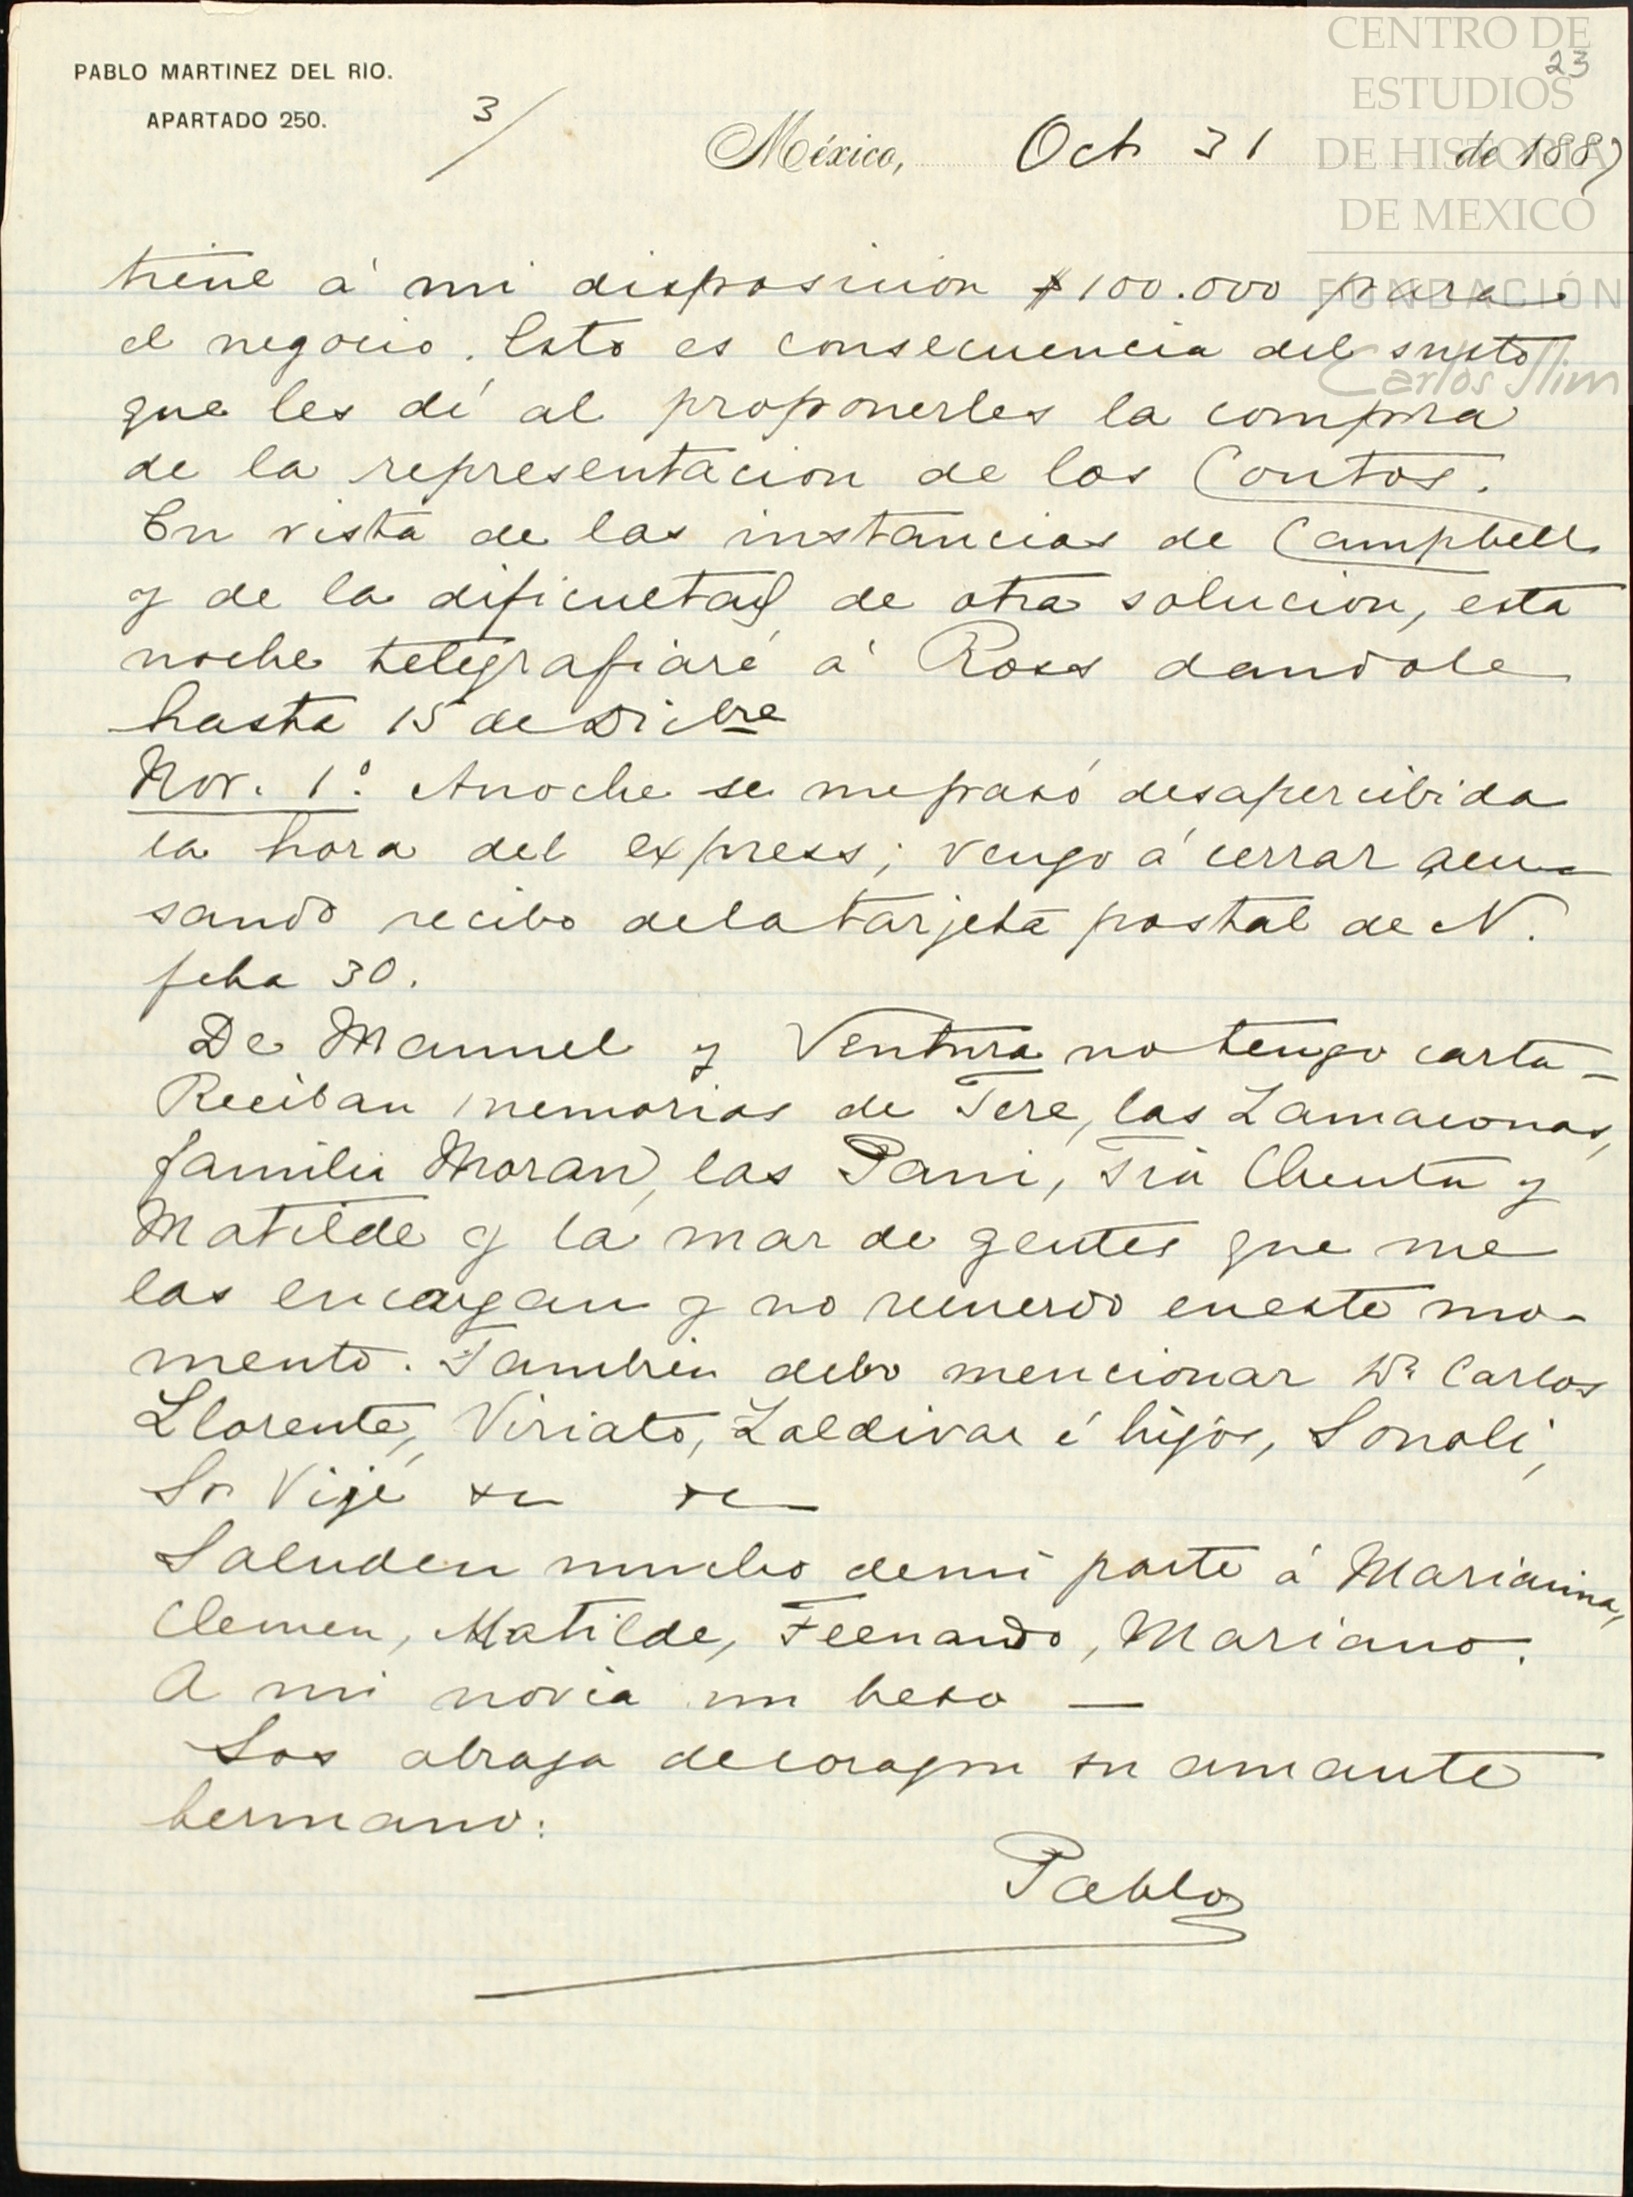 CENTRO DE
ESTUDIOS
DE HISTORIA
DE MEXICO
FUNDACIÓN
Carlos Slim
23
PABLO MARTINEZ DEL RIO.
APARTADO 250.
3/
México, Oct 31 de 1887
tiene á mi disposicion $100.000 para
el negocio. Esto es consecuencia del susto
que les dí al proponerles la compra
de la representacion de los Coutos.
En vista de las instancias de Campbell
y de la dificultad de otra solucion, esta
noche telegrafiaré á Ross dandole
hasta 15 de Dicbre
Nov. 1º. Anoche se me pasó desapercibida
la hora del express; vengo á cerrar acu-
sando recibo de la tarjeta postal de N.
fcha 30.
De Manuel y Ventura no tengo carta=
Reciban memorias de Tere, las Lamaconas,
familia Moran, las Pani, Tia Chenta y
Matilde y la mar de gentes que me
las encargan y no recuerdo en este mo-
mento. Tambien debo mencionar Dn Carlos
Llorente, Viriato, Zaldivar é hijos, Sonoli,
Sr Vijé
Saluden mucho de mi parte á Marianina,
Clemen, Matilde, Fernando, Mariano.
A mi novia un beso —
Los abraza de corazon su amante
hermano:
Pablo